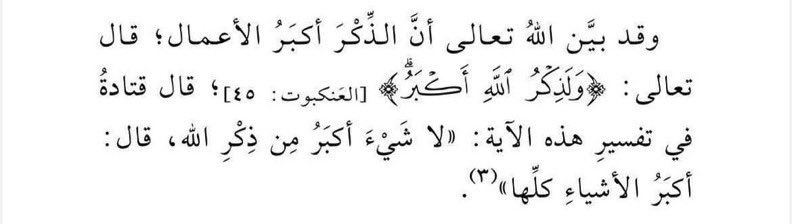 وقد بيَّن اللهُ تعالى أنَّ الذِّكْرَ أكبَرُ الأعمال؛ قال
تعالى: ﴿وَلَذِكْرُ ٱللَّهِ أَكْبَرُۗ﴾ [العَنكبوت: ٤٥]؛ قال قتادةُ
في تفسيرِ هذه الآية: «لا شَيْءَ أكبَرُ مِن ذِكْرِ الله، قال:
أكبَرُ الأشياءِ كلِّها»(٣).